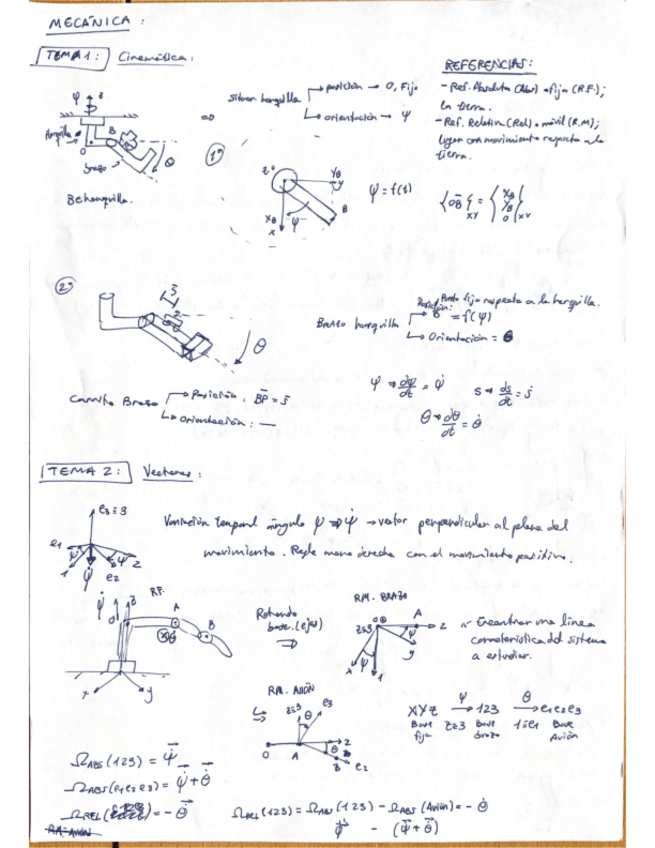 MECÁNICA:
TEMA 1: Cinemática:
REFERENCIAS:
- Ref. Absoluta (Abs) o fija (R.F.);
la tierra.
- Ref. Relativa (Rel) o móvil (R.M);
lugar con movimiento respecto a la
tierra.
ψ z
Horquilla
O B
brazo θ
⇒ horquilla
posición → O, Fijo
orientación → ψ
1º
ψ = f(s)
B
x
{OB}xy = { xB yB 0 }xy
2º
s
θ
Brazo horquilla
Posición: Punto fijo respecto a la horquilla.
B = f(ψ)
Orientación = θ
Carrito Brazo
Posición: BP = s
Orientación: —
ψ → dψ/dt = ψ̇ s → ds/dt = ṡ
θ → dθ/dt = θ̇
TEMA 2: Vectores:
e3 ≡ 3
e1 ψ ψ 2
1 ψ̇ e2
Variación temporal ángulo ψ ⇒ ψ̇ → vector perpendicular al plano del
movimiento. Regla mano derecha con el movimiento positivo.
R.F.
ψ̇ z
O A B
θ
x y
Rotando
base. (ejes)
⇒
R.M. BRAZO
z≡3 O A 2
x ψ 1 y
Encontrar una línea
característica del sistema
a estudiar.
R.M. AVIÓN
z≡3 θ e3
O A θ 2
B e2
XYZ —ψ→ 123 —θ→ e1e2e3
Base fija z≡3 Base brazo 1≡e1 Base Avión
ΩABS (123) = ψ̇
ΩABS (e1e2e3) = ψ̇ + θ̇
ΩREL = - θ̇
ΩREL (123) = ΩABS (123) - ΩABS (Avión) = - θ̇
ψ̇ - (ψ̇ + θ̇)